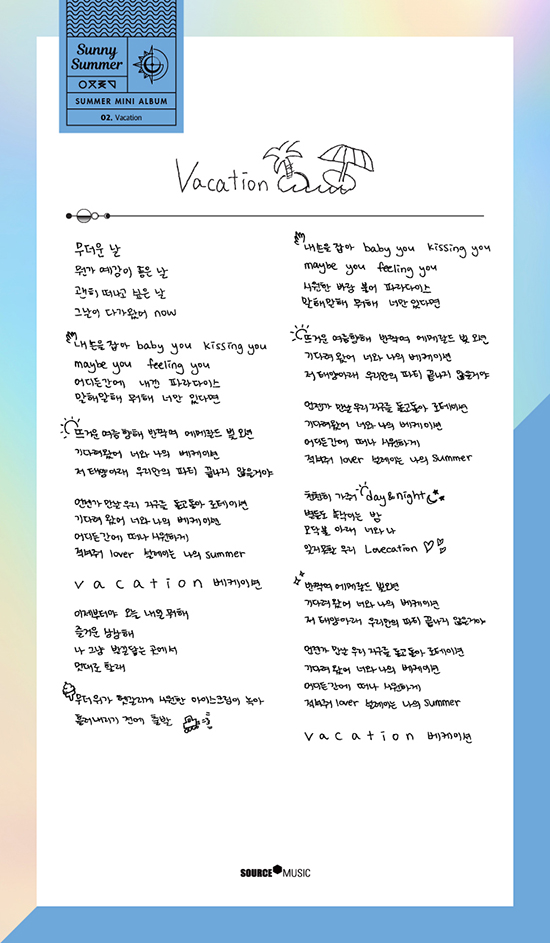 Sunny
Summer
SUMMER MINI ALBUM
02. Vacation
Vacation
무더운 날
뭔가 예감이 좋은 날
괜히 떠나고 싶은 날
그날이 다가왔어 now
내 손을 잡아 baby you kissing you
maybe you feeling you
어디든간에 내겐 파라다이스
말해말해 뭐해 너만 있다면
뜨거운 여름향해 반짝여 에메랄드 빛 외면
기다려왔어 너와 나의 베케이션
저 태양아래 우리만의 파티 끝나지 않을거야
언젠가 만난 우리 지구를 돌고돌아 로테이션
기다려 왔어 너와 나의 베케이션
어디든간에 떠나 시원하게
적셔줘 lover 설레이는 나의 summer
vacation 베케이션
이제부터야 오늘 내일 뭐해
즐거운 상상해
나 그냥 발끝닿는 곳에서
멋대로 할래
무더위가 헷갈리게 시원한 아이스크림이 녹아
흘러내리기 전에 출발
내 손을 잡아 baby you kissing you
maybe you feeling you
시원한 바람 불어 파라다이스
말해말해 뭐해 너만 있다면
뜨거운 여름향해 반짝여 에메랄드 빛 외면
기다려 왔어 너와 나의 베케이션
저 태양아래 우리만의 파티 끝나지 않을거야
언젠가 만난 우리 지구를 돌고돌아 로테이션
기다려 왔어 너와 나의 베케이션
어디든간에 떠나 시원하게
적셔줘 lover 설레이는 나의 summer
천천히 가줘 day & night
별들도 속삭이는 밤
모닥불 아래 너와 나
잊지못할 우리 Lovecation
반짝여 에메랄드 빛 외면
기다려 왔어 너와 나의 베케이션
저 태양아래 우리만의 파티 끝나지 않을거야
언젠가 만난 우리 지구를 돌고돌아 로테이션
기다려 왔어 너와 나의 베케이션
어디든간에 떠나 시원하게
적셔줘 lover 설레이는 나의 summer
vacation 베케이션
SOURCE MUSIC